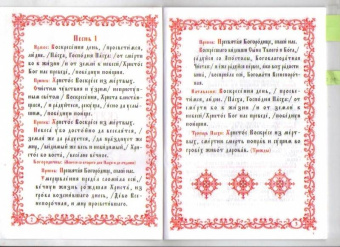 Песнь 1
Ирмос: Воскресения день, / просветимся,
людие. / Пасха, Господня Пасха: / от
смерти бо к жизни / и от земли к небеси, / Христос
Бог нас преведе, / победную поющия.
Припев: Христос воскресе из мертвых.
Очистим чувствия и узрим / неприступ-
ным светом / воскресения, Христа / бли-
стающася, и радуйтеся, рекуща, / ясно да услы-
шим, / победную поюще.
Припев: Христос воскресе из мертвых.
Небеса убо достойно да веселятся, /
земля же да радуется, / да празднует же
мир, / видимый же весь и невидимый, / Хри-
стос бо воста, / веселие вечное.
Припев: Пресвятая Богородице, спаси нас.
Умерщвления предел сломила еси, /
вечную жизнь рождшая Христа, / из
гроба возсиявшаго днесь, / Дево Все-
непорочная, / и мир просветившаго.
Припев: Пресвятая Богородице, спаси нас.
Воскресшаго видевши Сына Твоего и Бога, /
радуйся со апостолы, Богоблагодатная
Чистая: / и еже радуйся первее, яко всех радости
вина, восприяла еси, / Богомати Всенепороч-
ная.
Катавасия: Воскресения день, / просветимся,
людие. / Пасха, Господня Пасха: / от
смерти бо к жизни / и от земли к небеси, /
Христос Бог нас преведе, / победную
поющия.
Христос воскресе из мерт-
вых, смертию смерть поправ и сущим во
гробех живот даровав. (Трижды)